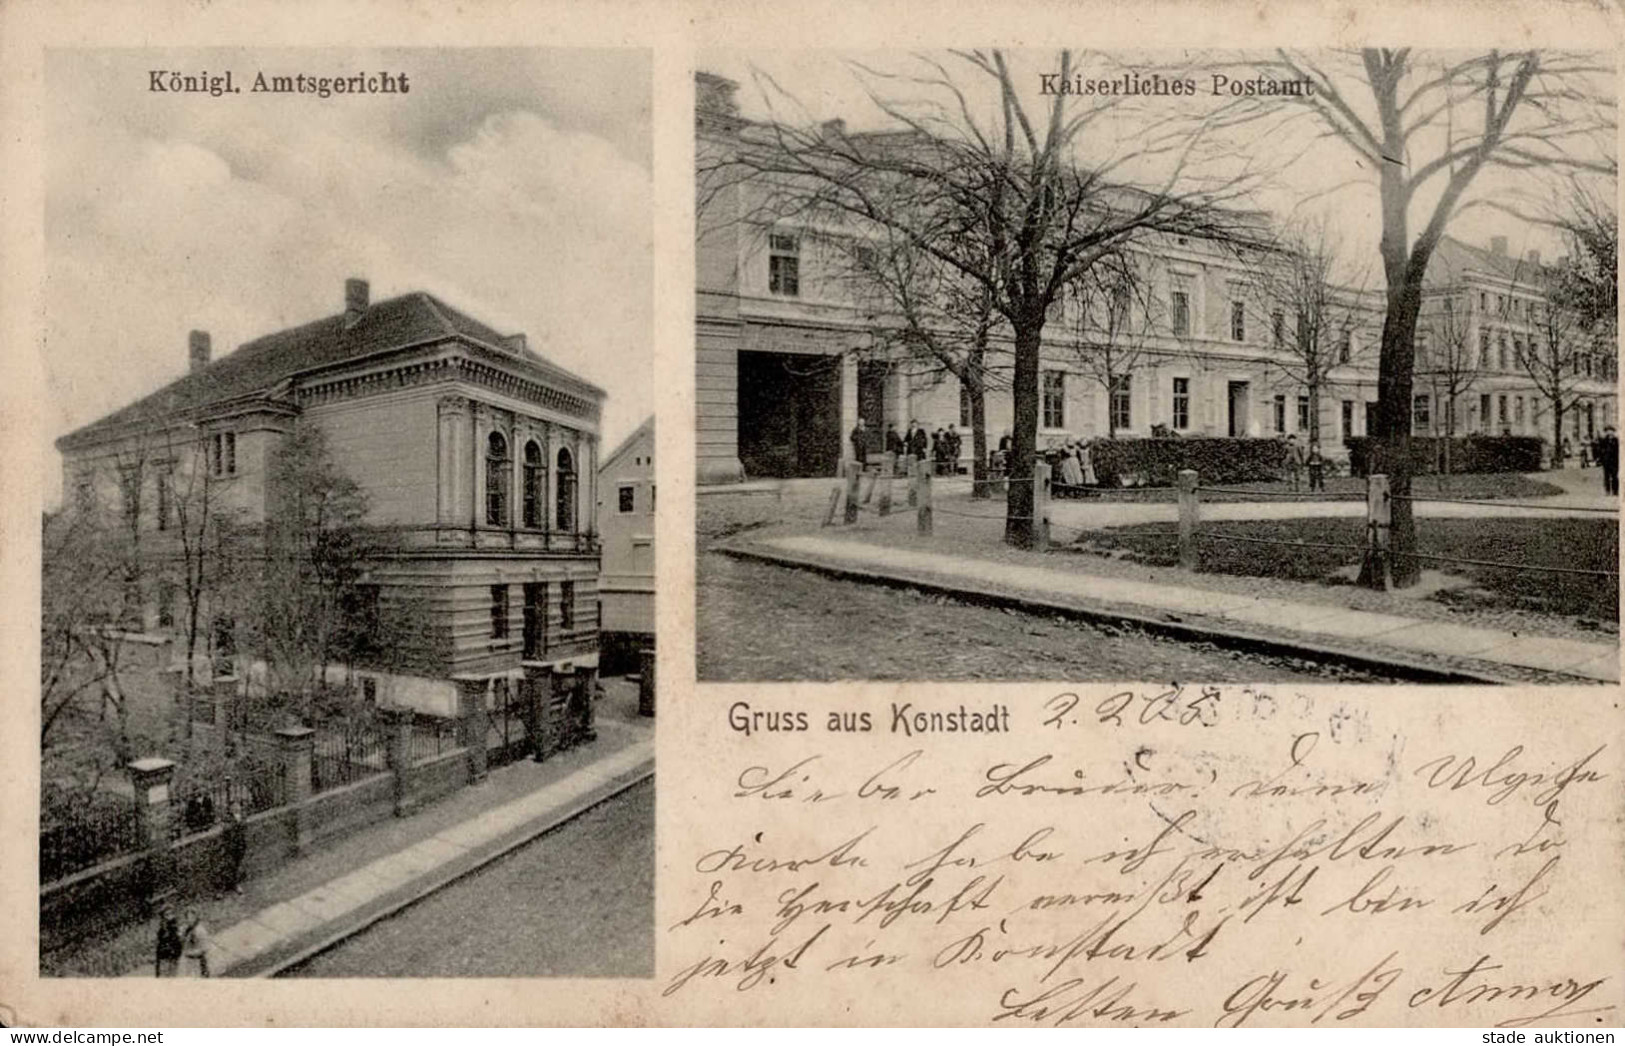 Königl. Amtsgericht
Kaiserliches Postamt
Gruss aus Konstadt 2. 2. 05
Lieber Bruder! Deine
Karte habe ich erhalten Da
die Herschaft vereißt ist bin ich
jetzt in Konstadt
Besten Gruß Anna
stade auktionen